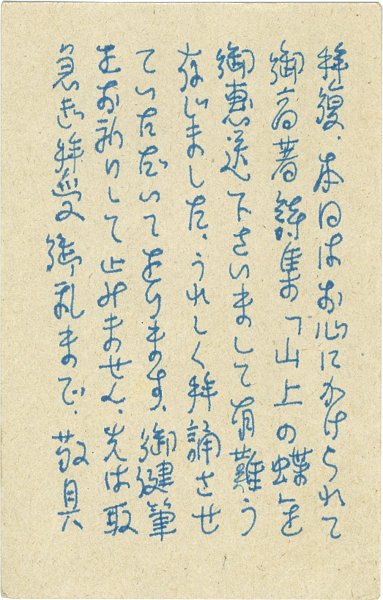 拝復、本日はお心にかけられて
御高著詩集「山上の蝶」を
御恵送下さいまして有難う
存じました、うれしく拝誦させ
ていただいてをります、御健筆
をお祈りして止みません、先は取
急ぎ拝受御礼まで、敬具